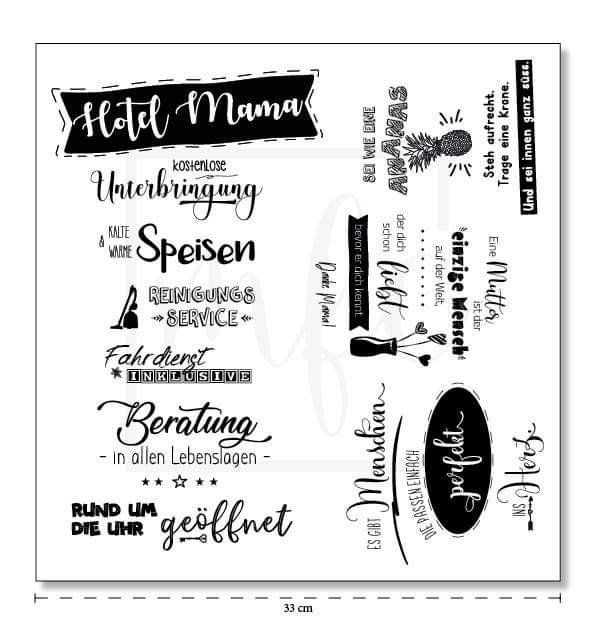 Hotel Mama
kostenlose
Unterbringung
& KALTE
WARME
Speisen
REINIGUNGS
SERVICE
Fahrdienst
INKLUSIVE
Beratung
- in allen Lebenslagen -
RUND UM
DIE UHR
geöffnet
SEI WIE EINE
ANANAS
Steh aufrecht.
Trage eine Krone.
Und sei innen ganz süss.
Eine Mutter
ist der
einzige Mensch
auf der Welt,
der dich
schon liebt
bevor er dich kennt.
Danke Mama!
ES GIBT Menschen
DIE PASSEN EINFACH
perfekt
INS Herz.
33 cm